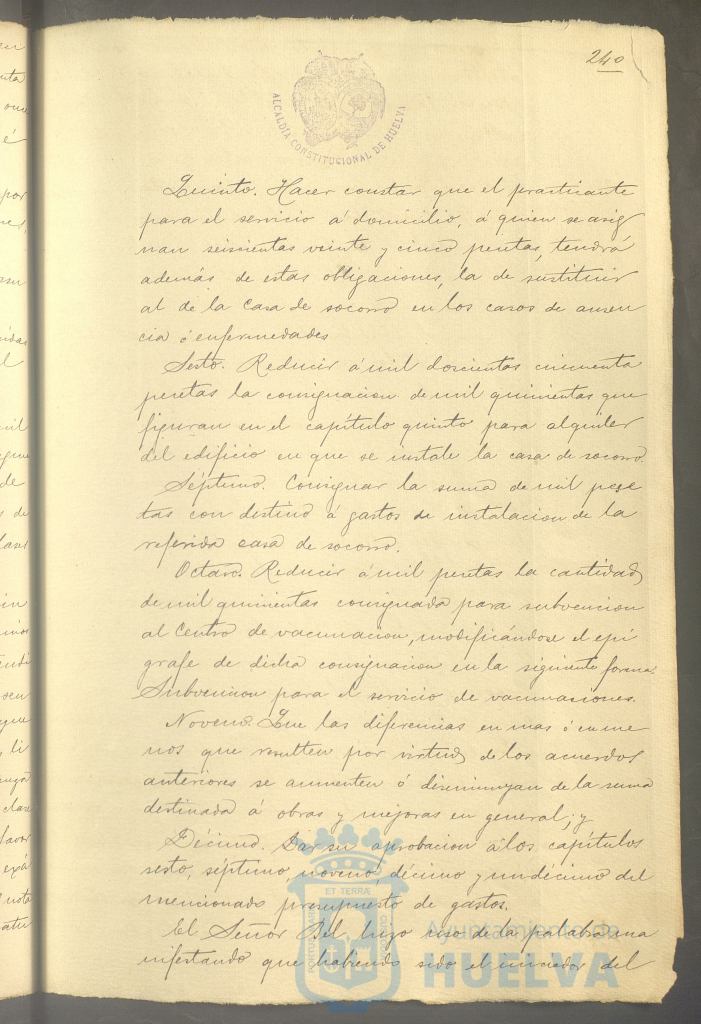 240
ALCALDÍA CONSTITUCIONAL DE HUELVA
Quinto. Hacer constar que el practicante
para el servicio á domicilio, á quien se asig
nan seiscientas veinte y cinco pesetas, tendrá
además de estas obligaciones, la de sustituir
al de la Casa de socorro en los casos de ausen
cia ó enfermedades
Sesto. Reducir á mil doscientas cincuenta
pesetas la consignacion de mil quinientas que
figuran en el capítulo quinto para alquiler
del edificio en que se instale la casa de socorro.
Séptimo. Consignar la suma de mil pese
tas con destino á gastos de instalacion de la
referida casa de socorro.
Octavo. Reducir á mil pesetas la cantidad
de mil quinientas consignada para subvencion
al Centro de vacunacion, modificándose el epí
grafe de dicha consignacion en la siguiente forma:
Subvencion para el servicio de vacunaciones.
Noveno. Que las diferencias en mas ó en me
nos que resulten por virtud de los acuerdos
anteriores se aumenten ó disminuyan de la suma
destinada á obras y mejoras en general; y
Décimo. Dar su aprobacion á los capítulos
sesto, séptimo, noveno, décimo y undécimo del
mencionado presupuesto de gastos.
El Señor Bel hizo uso de la palabra ma
nifestando que habiendo sido el iniciador del
Ayuntamiento de
HUELVA
ET TERRÆ